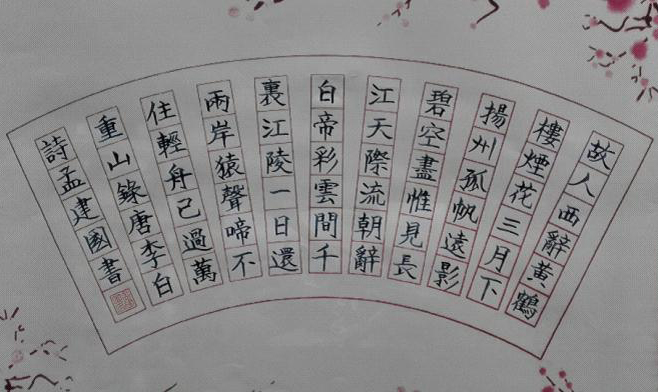 故人西辭黃鶴
樓煙花三月下
揚州孤帆遠影
碧空盡惟見長
江天際流朝辭
白帝彩雲間千
裏江陵一日還
兩岸猿聲啼不
住輕舟已過萬
重山錄唐李白
詩孟建國書